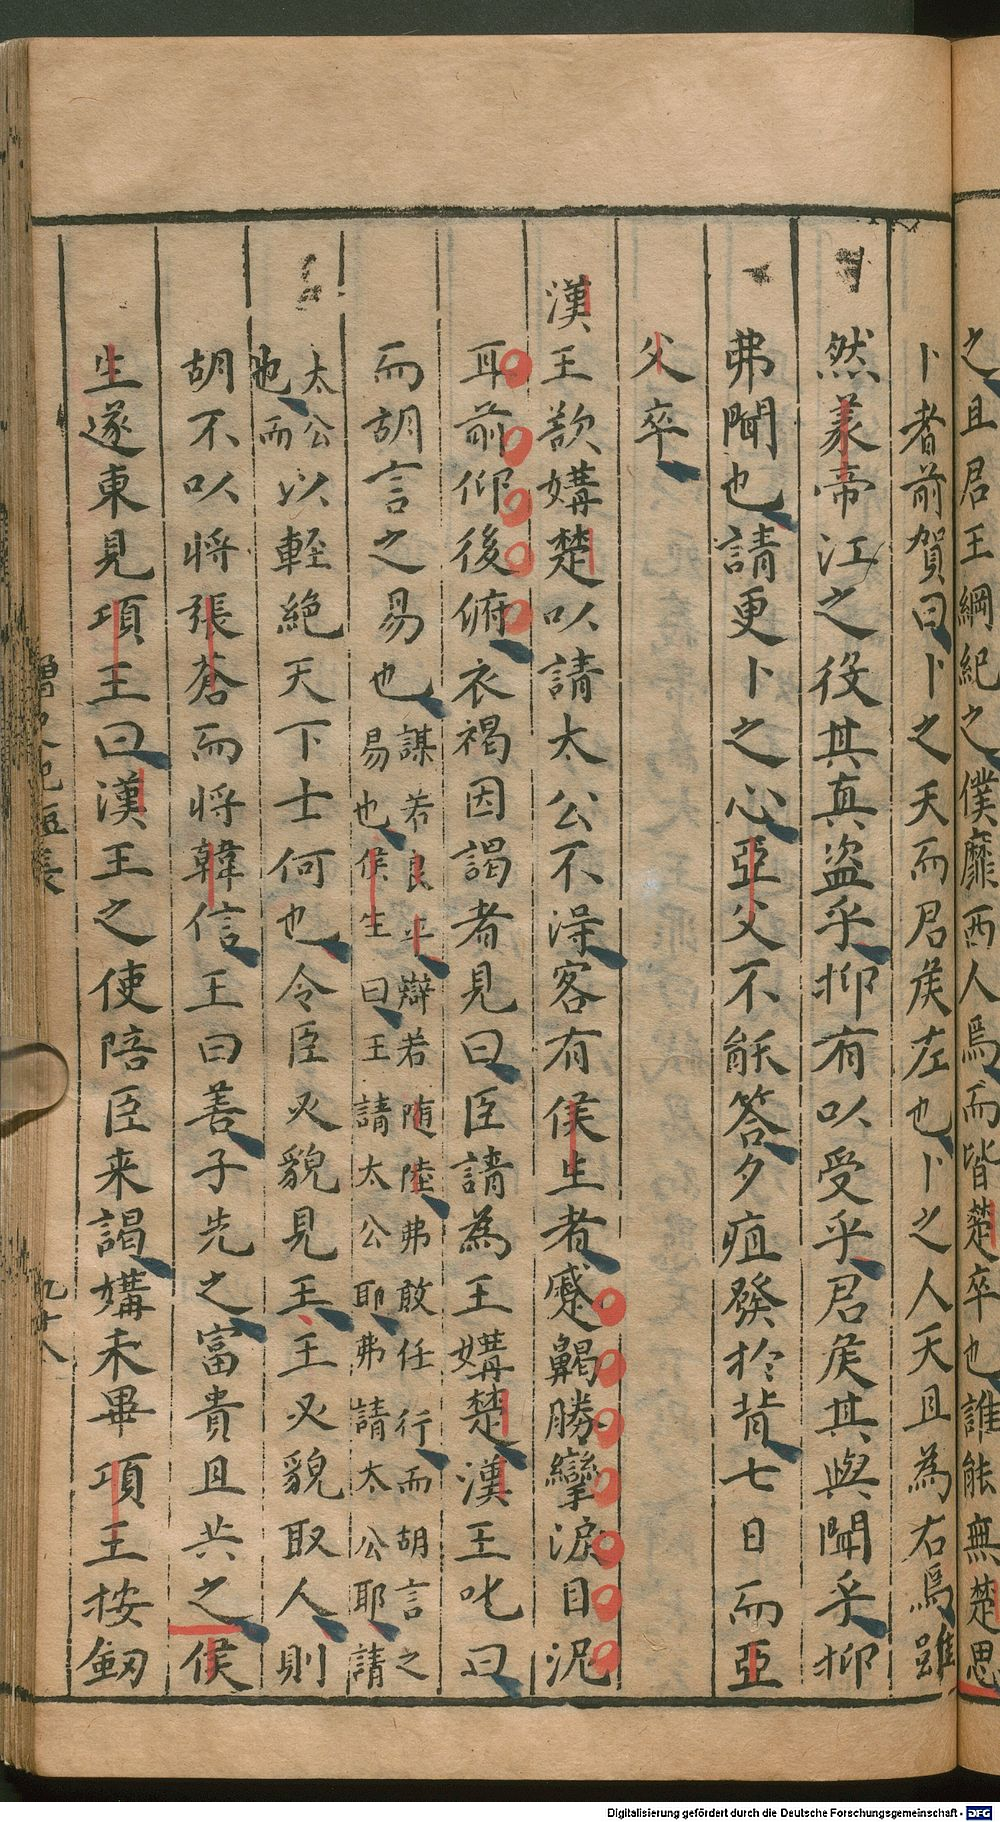 之且君王綱紀之僕靡西人焉而皆楚卒也誰能無楚思
卜者前賀曰卜之天而君矦左也卜之人天且為右焉雖
然義帝江之役其真盜乎抑有以受乎君矦其與聞乎抑
弗聞也請更卜之心亞父不能答夕疽發於背七日而亞
父卒
漢王欲媾楚以請太公不得客有侯生者蹙齃勝攣淚目泥
耳前仰後俯衣褐因謁者見曰臣請為王媾楚漢王叱曰
而胡言之易也謀若良平辯若随陸弗敢任行而胡言之
易也侯生曰王請太公耶弗請太公耶請
太公以輕絕天下士何也令臣以貌見王王又貌取人則
也而
胡不以將張蒼而將韓信王曰善子先之富貴且共之侯
生遂東見項王曰漢王之使陪臣来謁媾未畢項王按劔
九十八
Digitalisierung gefördert durch die Deutsche Forschungsgemeinschaft - DFG